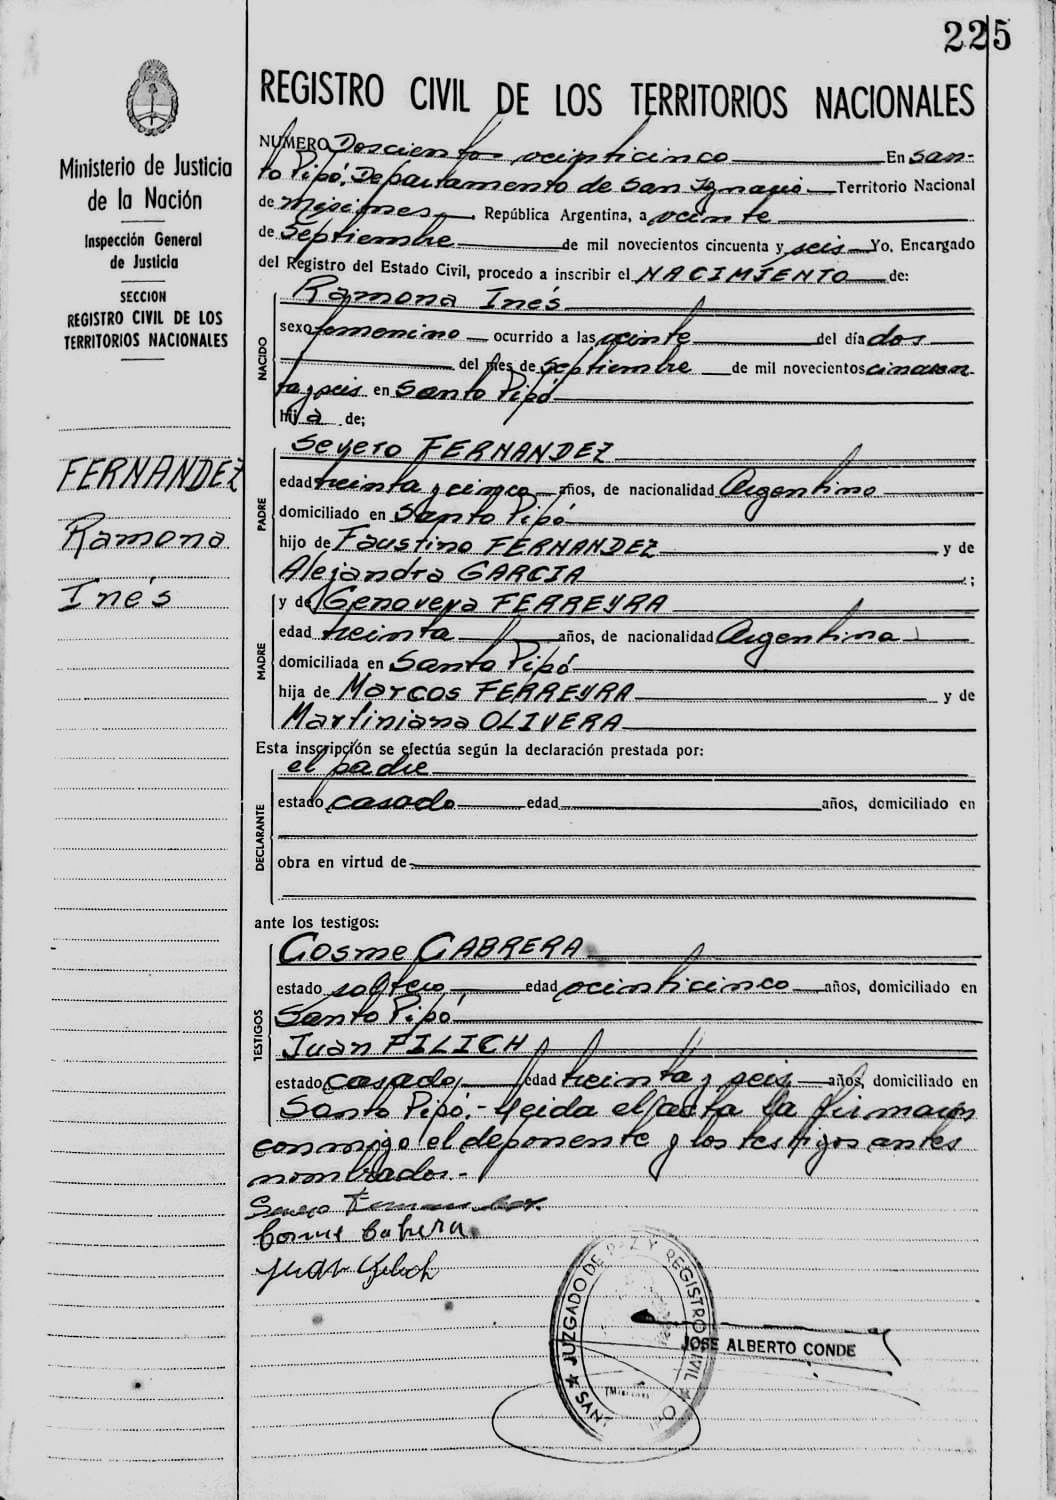 225
Ministerio de Justicia
de la Nación
Inspección General
de Justicia
SECCION
REGISTRO CIVIL DE LOS
TERRITORIOS NACIONALES
FERNANDEZ
Ramona
Inés
REGISTRO CIVIL DE LOS TERRITORIOS NACIONALES
NUMERO Doscientos veinticinco En San-
to Pipó, Departamento de San Ignacio Territorio Nacional
de Misiones, República Argentina, a veinte
de Septiembre de mil novecientos cincuenta y seis Yo, Encargado
del Registro del Estado Civil, procedo a inscribir el NACIMIENTO de:
NACIDO
Ramona Inés
sexo femenino ocurrido a las veinte del día dos
del mes de Septiembre de mil novecientos cincuen-
ta y seis en Santo Pipó
hij a de;
PADRE
Severo FERNANDEZ
edad treinta y cinco años, de nacionalidad Argentino
domiciliado en Santo Pipó
hijo de Faustino FERNANDEZ y de
Alejandra GARCIA ;
MADRE
y de Genoveva FERREYRA
edad treinta años, de nacionalidad Argentina
domiciliada en Santo Pipó
hija de Marcos FERREYRA y de
Martiniana OLIVERA
Esta inscripción se efectúa según la declaración prestada por:
DECLARANTE
el padre
estado casado edad años, domiciliado en
obra en virtud de
ante los testigos:
TESTIGOS
Cosme CABRERA
estado soltero edad veinticinco años, domiciliado en
Santo Pipó
Juan FILICH
estado casado edad treinta y seis años, domiciliado en
Santo Pipó.- Leida el acta la firman
conmigo el deponente y los testigos antes
nombrados.-
Severo Fernandez
Cosme Cabrera
Juan Filich
JUZGADO DE PAZ Y REGISTRO CIVIL
JOSE ALBERTO CONDE